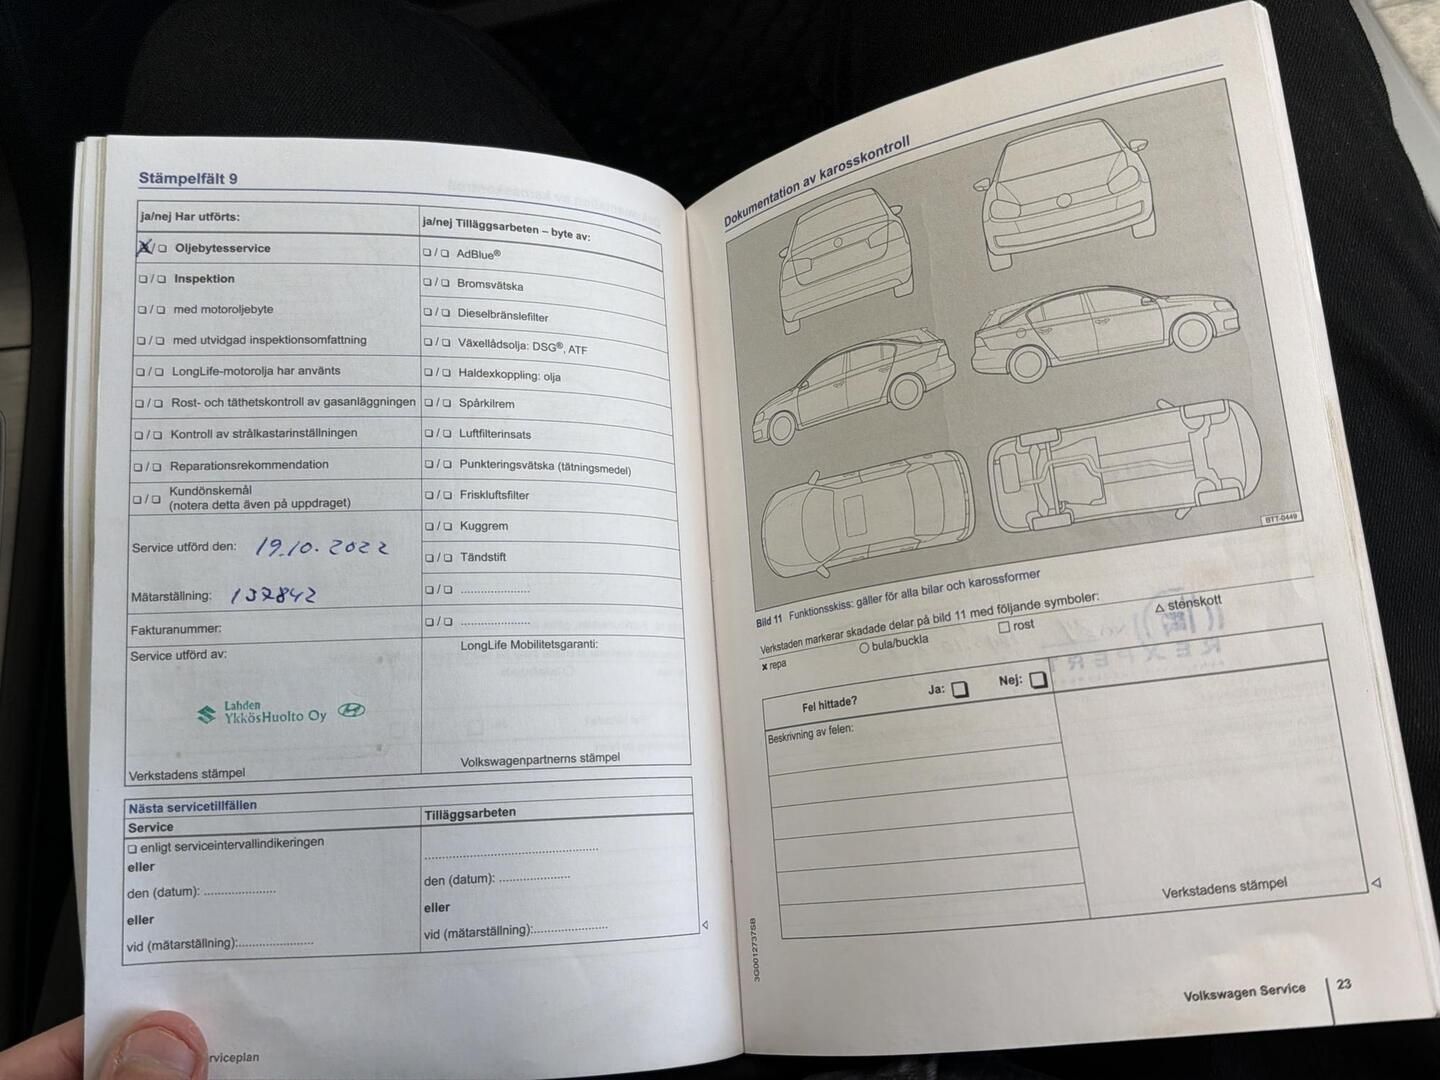 Stämpelfält 9
ja/nej Har utförts:
X/❑ Oljebytesservice
❑/❑ Inspektion
❑/❑ med motoroljebyte
❑/❑ med utvidgad inspektionsomfattning
❑/❑ LongLife-motorolja har använts
❑/❑ Rost- och täthetskontroll av gasanläggningen
❑/❑ Kontroll av strålkastarinställningen
❑/❑ Reparationsrekommendation
❑/❑ Kundönskemål
(notera detta även på uppdraget)
Service utförd den: 19.10.2022
Mätarställning: 137842
Fakturanummer:
Service utförd av:
Lahden
YkkösHuolto Oy
Verkstadens stämpel
ja/nej Tilläggsarbeten – byte av:
❑/❑ AdBlue®
❑/❑ Bromsvätska
❑/❑ Dieselbränslefilter
❑/❑ Växellådsolja: DSG®, ATF
❑/❑ Haldexkoppling: olja
❑/❑ Spårkilrem
❑/❑ Luftfilterinsats
❑/❑ Punkteringsvätska (tätningsmedel)
❑/❑ Friskluftsfilter
❑/❑ Kuggrem
❑/❑ Tändstift
❑/❑ ......................
❑/❑ ......................
LongLife Mobilitetsgaranti:
Volkswagenpartnerns stämpel
Nästa servicetillfällen
Service
❑ enligt serviceintervallindikeringen
eller
den (datum): ......................
eller
vid (mätarställning):......................
Tilläggsarbeten
......................................................
den (datum): ......................
eller
vid (mätarställning):......................
rviceplan
Dokumentation av karosskontroll
BTT-0449
Bild 11 Funktionsskiss: gäller för alla bilar och karossformer
Verkstaden markerar skadade delar på bild 11 med följande symboler:
x repa ○ bula/buckla □ rost △ stenskott
Fel hittade? Ja: ❑ Nej: ❑
Beskrivning av felen:
Verkstadens stämpel
3G0012737SB
Volkswagen Service 23